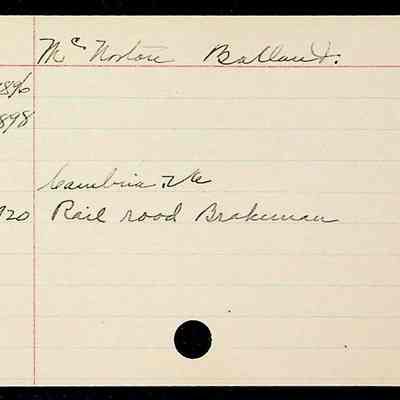 Mc Norton Ballard.
1896
1898
Cambria, Va
1920 Rail rood Brakeman